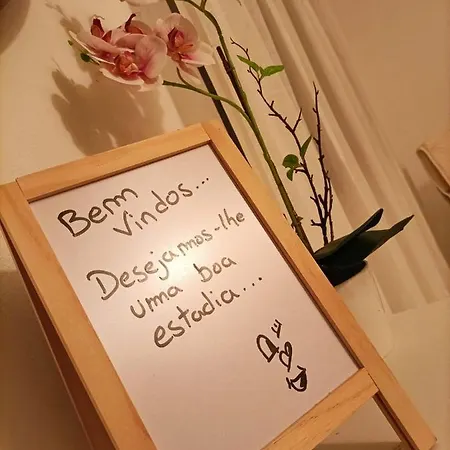 Bem
Vindos...
Desejamos-lhe
uma boa
estadia...